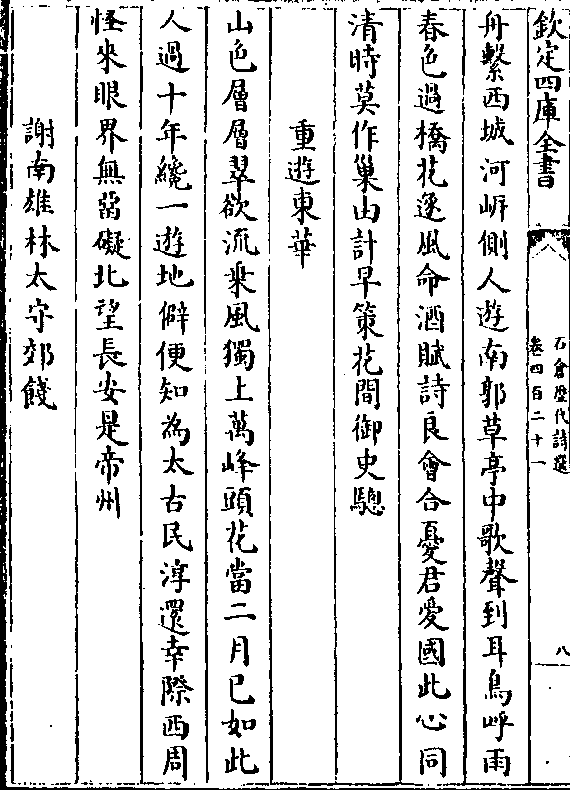 欽定四庫全書
石倉歷代詩選
卷四百二十一
八
舟繫西城河㟁側人遊南郭草亭中歌聲到耳鳥呼雨
春色過橋花逐風命酒賦詩良會合憂君愛國此心同
清時莫作巢由計早策花間御史驄
重遊東華
山色層層翠欲流乘風獨上萬峰頭花當二月已如此
人過十年纔一遊地僻便知為太古民淳還幸際西周
怪來眼界無窒礙北望長安是帝州
謝南雄林太守郊餞